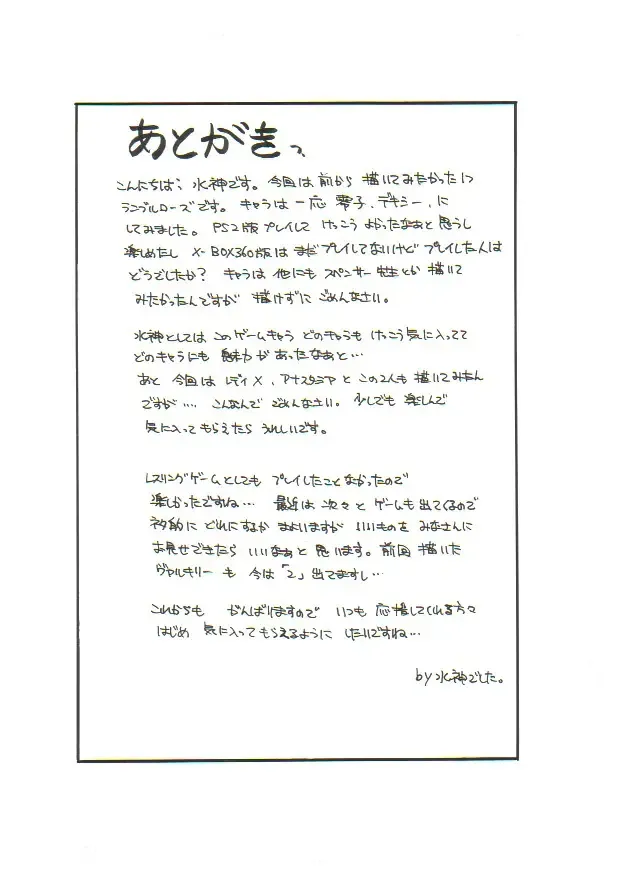 あとがきっ
こんにちは、水神です。今回は前から描いてみたかったり
ランブルローズです。キャラは一応 零子、デキシー、に
してみました。PS2版プレイして けっこう よかったなぁと思うし
楽しめたし X-BOX360版は まだプレイしてないけど プレイした人は
どうでしたか? キャラは 他にも スペンサー先生とか 描いて
みたかったんですが 描けずに ごめんなさい。
水神としては このゲームキャラ どのキャラも けっこう気に入ってて
どのキャラにも 魅力が あったなぁと…
あと 今回は レディX、アナスタシアと この2人も 描いてみたん
ですが… こんなんで ごめんなさい。少しでも 楽しんで
気に入ってもらえたら うれしいです。
レスリングゲームとしても プレイしたこと なかったので
楽しかったですね… 最近は 次々と ゲームも 出てくるので
ネタ的に どれにするか まよいますが いいものを みなさんに
お見せできたら いいなぁと 思います。前回 描いた
ヴァルキリー も 今は「2」出てますし…
これからも がんばりますので いつも 応援してくれる方々
はじめ 気に入ってもらえるように したいですね…
by水神でした。